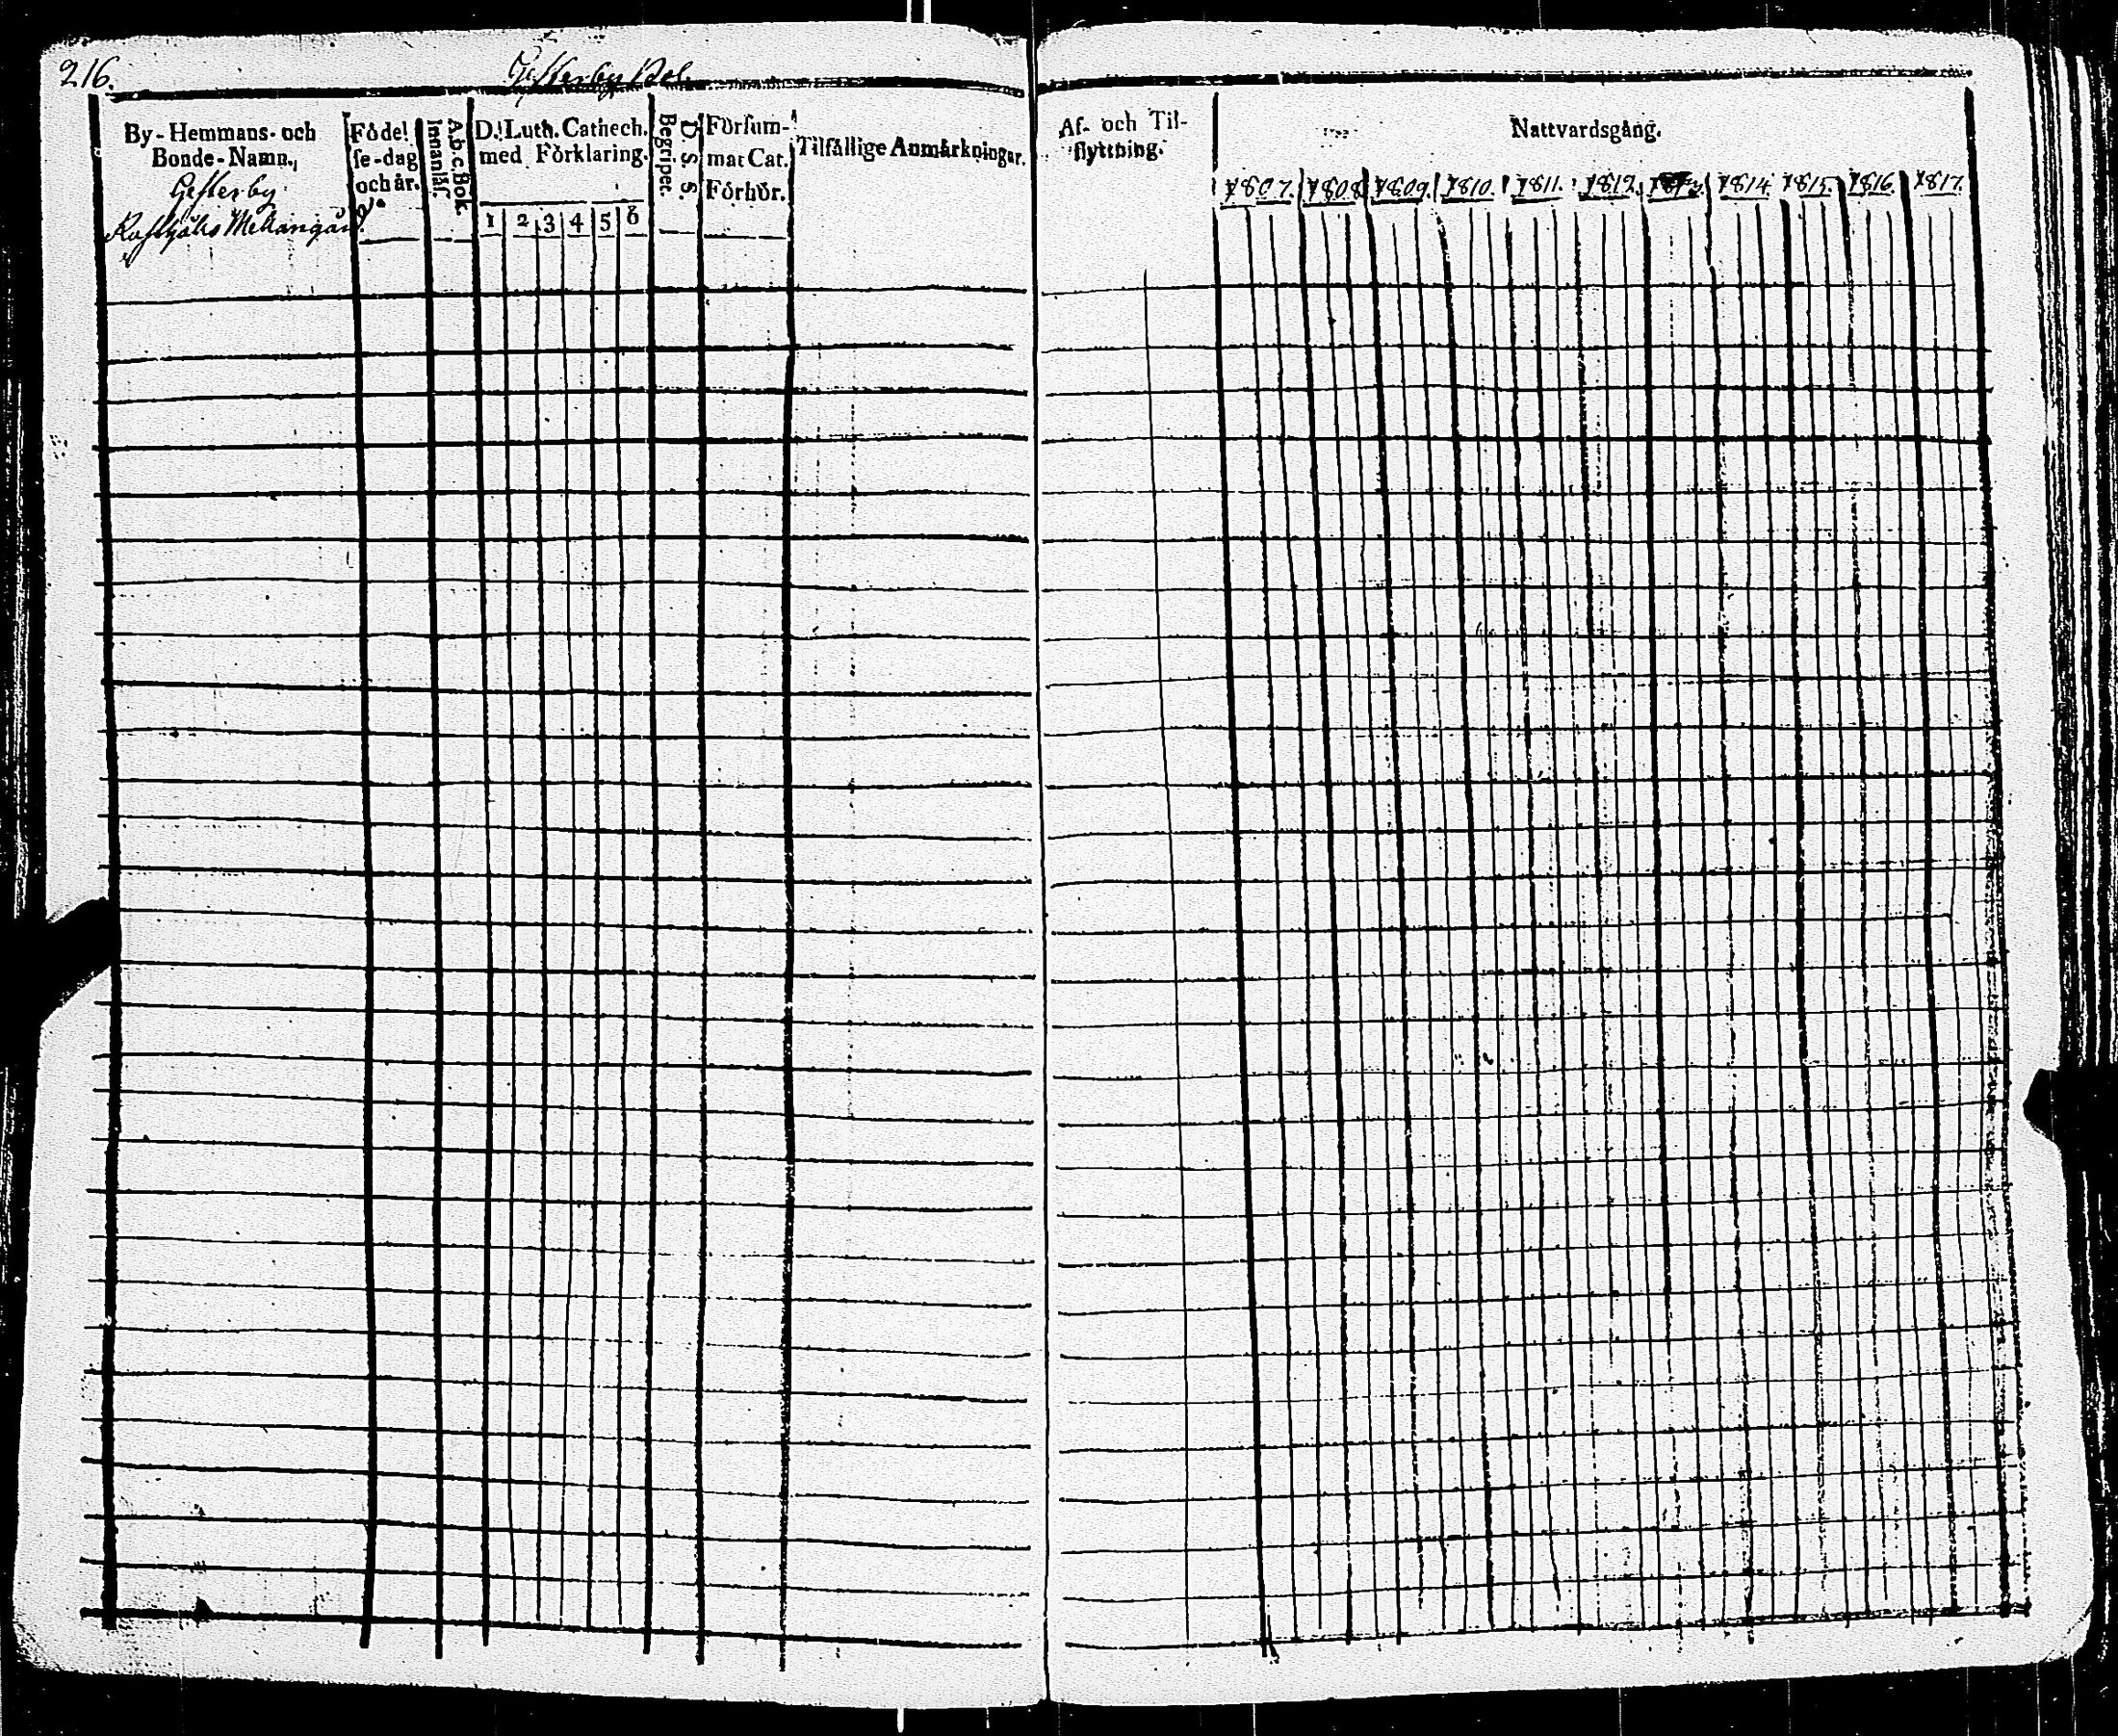 216.
Gesterby Bol.
By-Hemmans- och
Bonde-Namn.
Gesterby
Födel-
se-dag
och år.
A.b.c.Bok.
Innanläs.
D:ɩ Luth. Cathech.
med Förklaring.
1 2 3 4 5 6
D. S. S.
Begriper.
Försum-
mat Cat.
Förhör.
Tilfällige Anmärkningar.
Af- och Til-
flyttning.
Nattvardsgång.
1807. 1808 1809. 1810. 1811. 1812. 1813. 1814 1815. 1816. 1817.